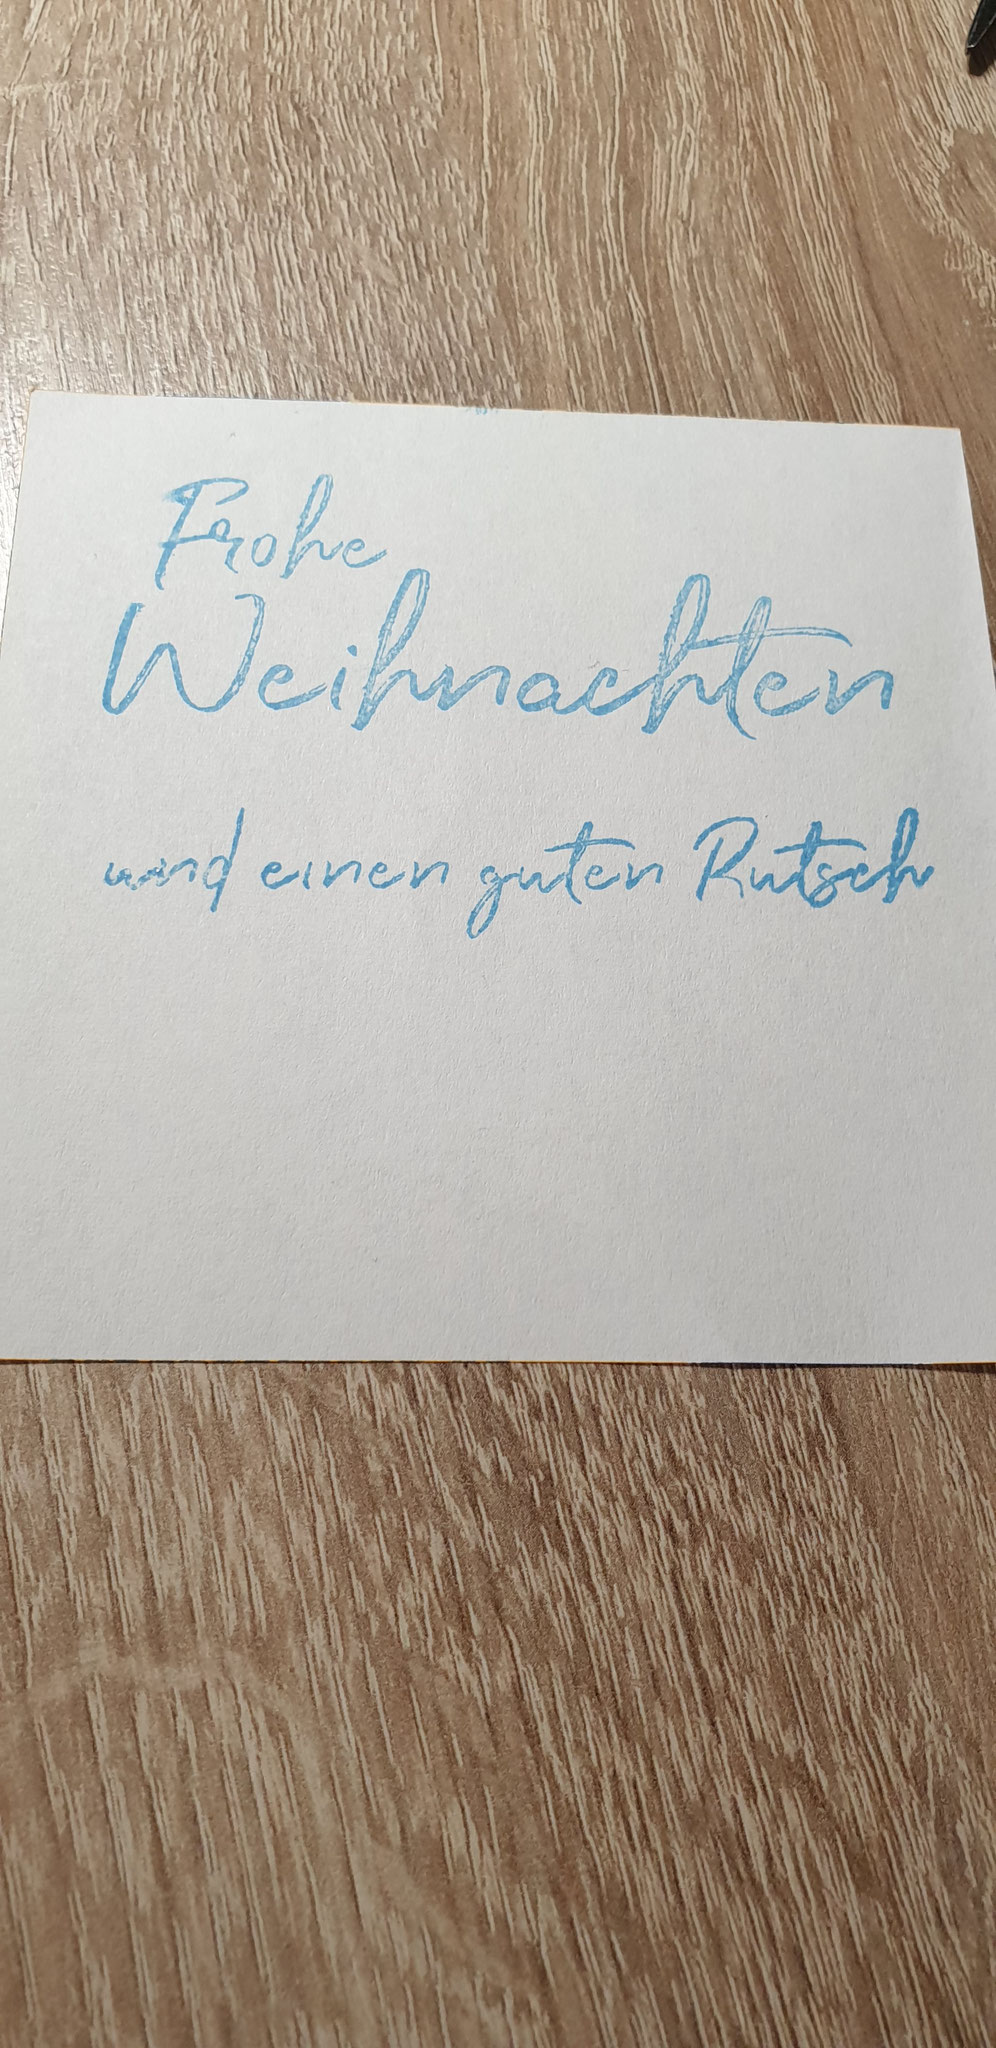 Frohe
Weihnachten
und einen guten Rutsch